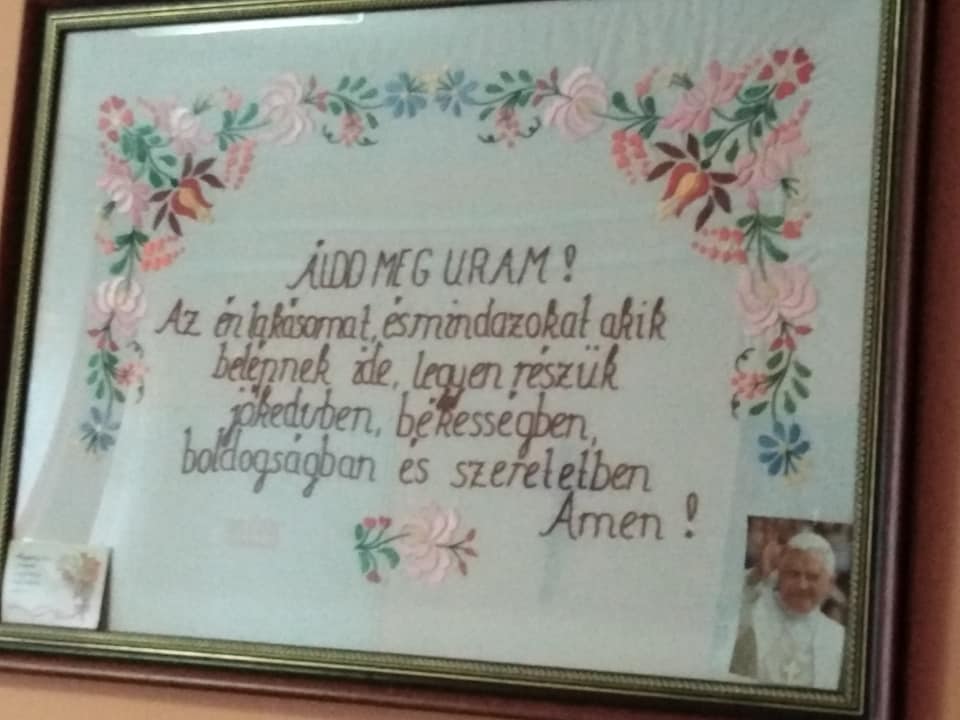 ÁLDD MEG URAM!
Az én lakásomat, és mindazokat akik
belépnek ide, legyen részük
jókedvben, békességben,
boldogságban és szeretetben
Amen!